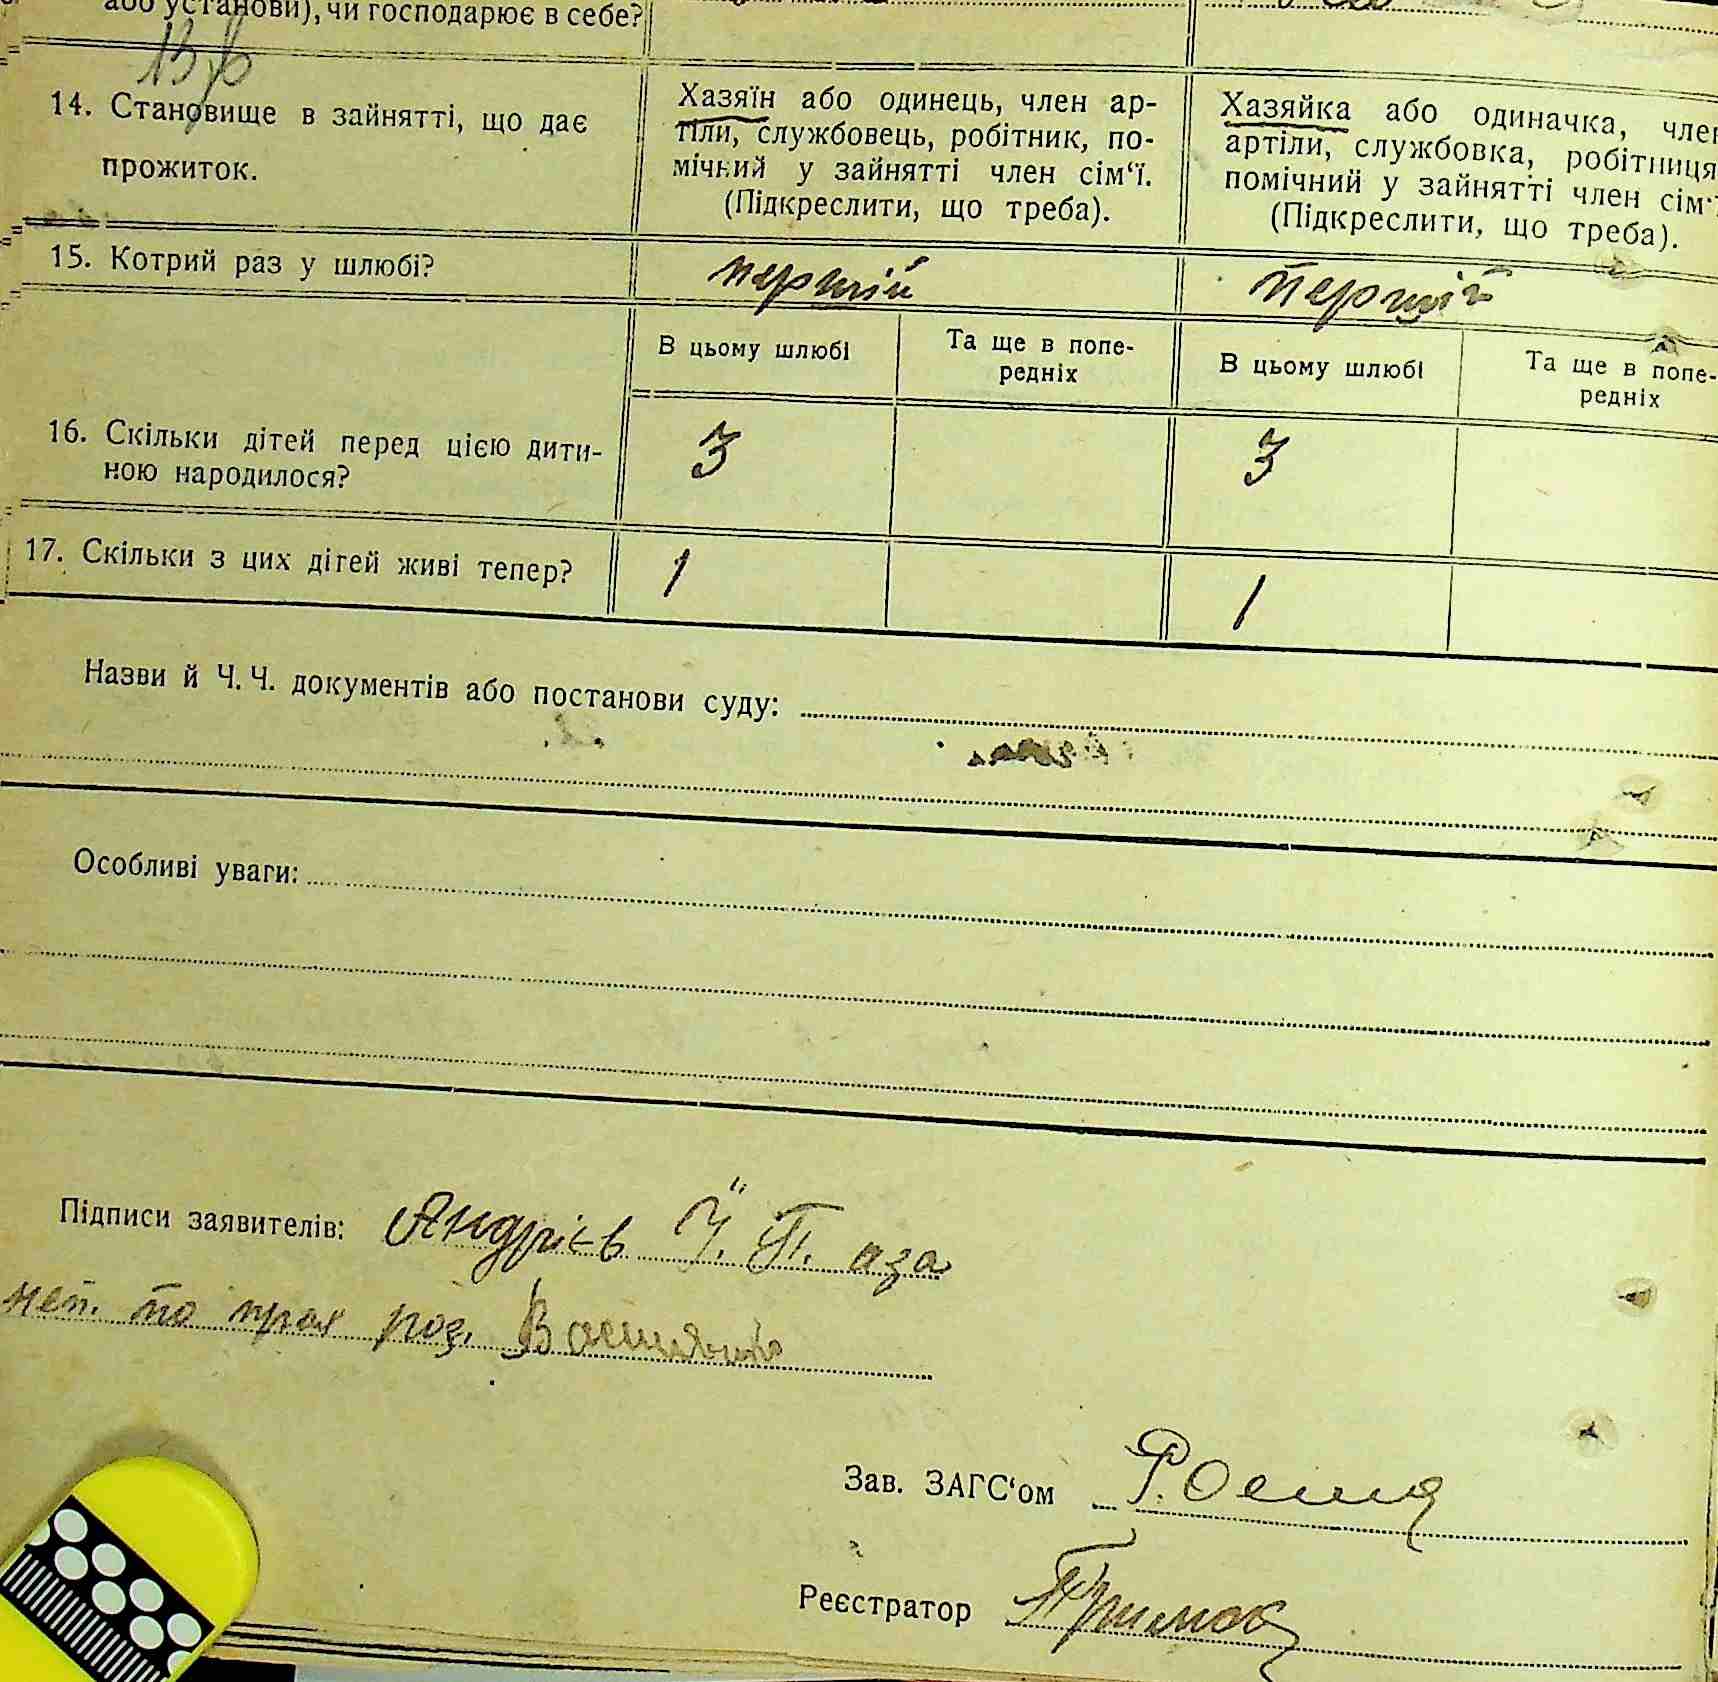 або установи), чи господарює в себе?
14. Становище в зайнятті, що дає
прожиток.
Хазяїн або одинець, член ар-
тіли, службовець, робітник, по-
мічний у зайнятті член сім‘ї.
(Підкреслити, що треба).
Хазяйка або одиначка, член
артіли, службовка, робітниця
помічний у зайнятті член сім‘ї
(Підкреслити, що треба).
15. Котрий раз у шлюбі?
першій
першій
В цьому шлюбі
Та ще в попе-
редніх
В цьому шлюбі
Та ще в попе-
редніх
16. Скільки дітей перед цією дити-
ною народилося?
3
3
17. Скільки з цих дітей живі тепер?
1
1
Назви й Ч. Ч. документів або постанови суду:
Особливі уваги:
Підписи заявителів: Андрієв Ї. П. аза
неп. то
роз.
Зав. ЗАГС‘ом
Реєстратор